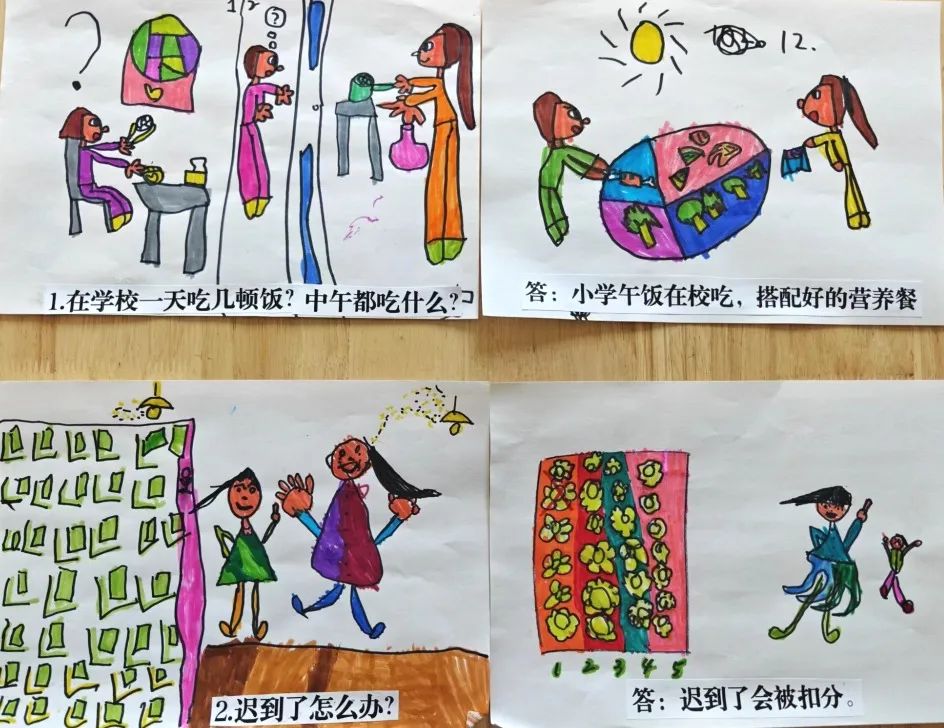 ?
1 2
?
1.在学校一天吃几顿饭？中午都吃什么？
12.
答：小学午饭在校吃，搭配好的营养餐
2.迟到了怎么办？
1 2 3 4 5
答：迟到了会被扣分。